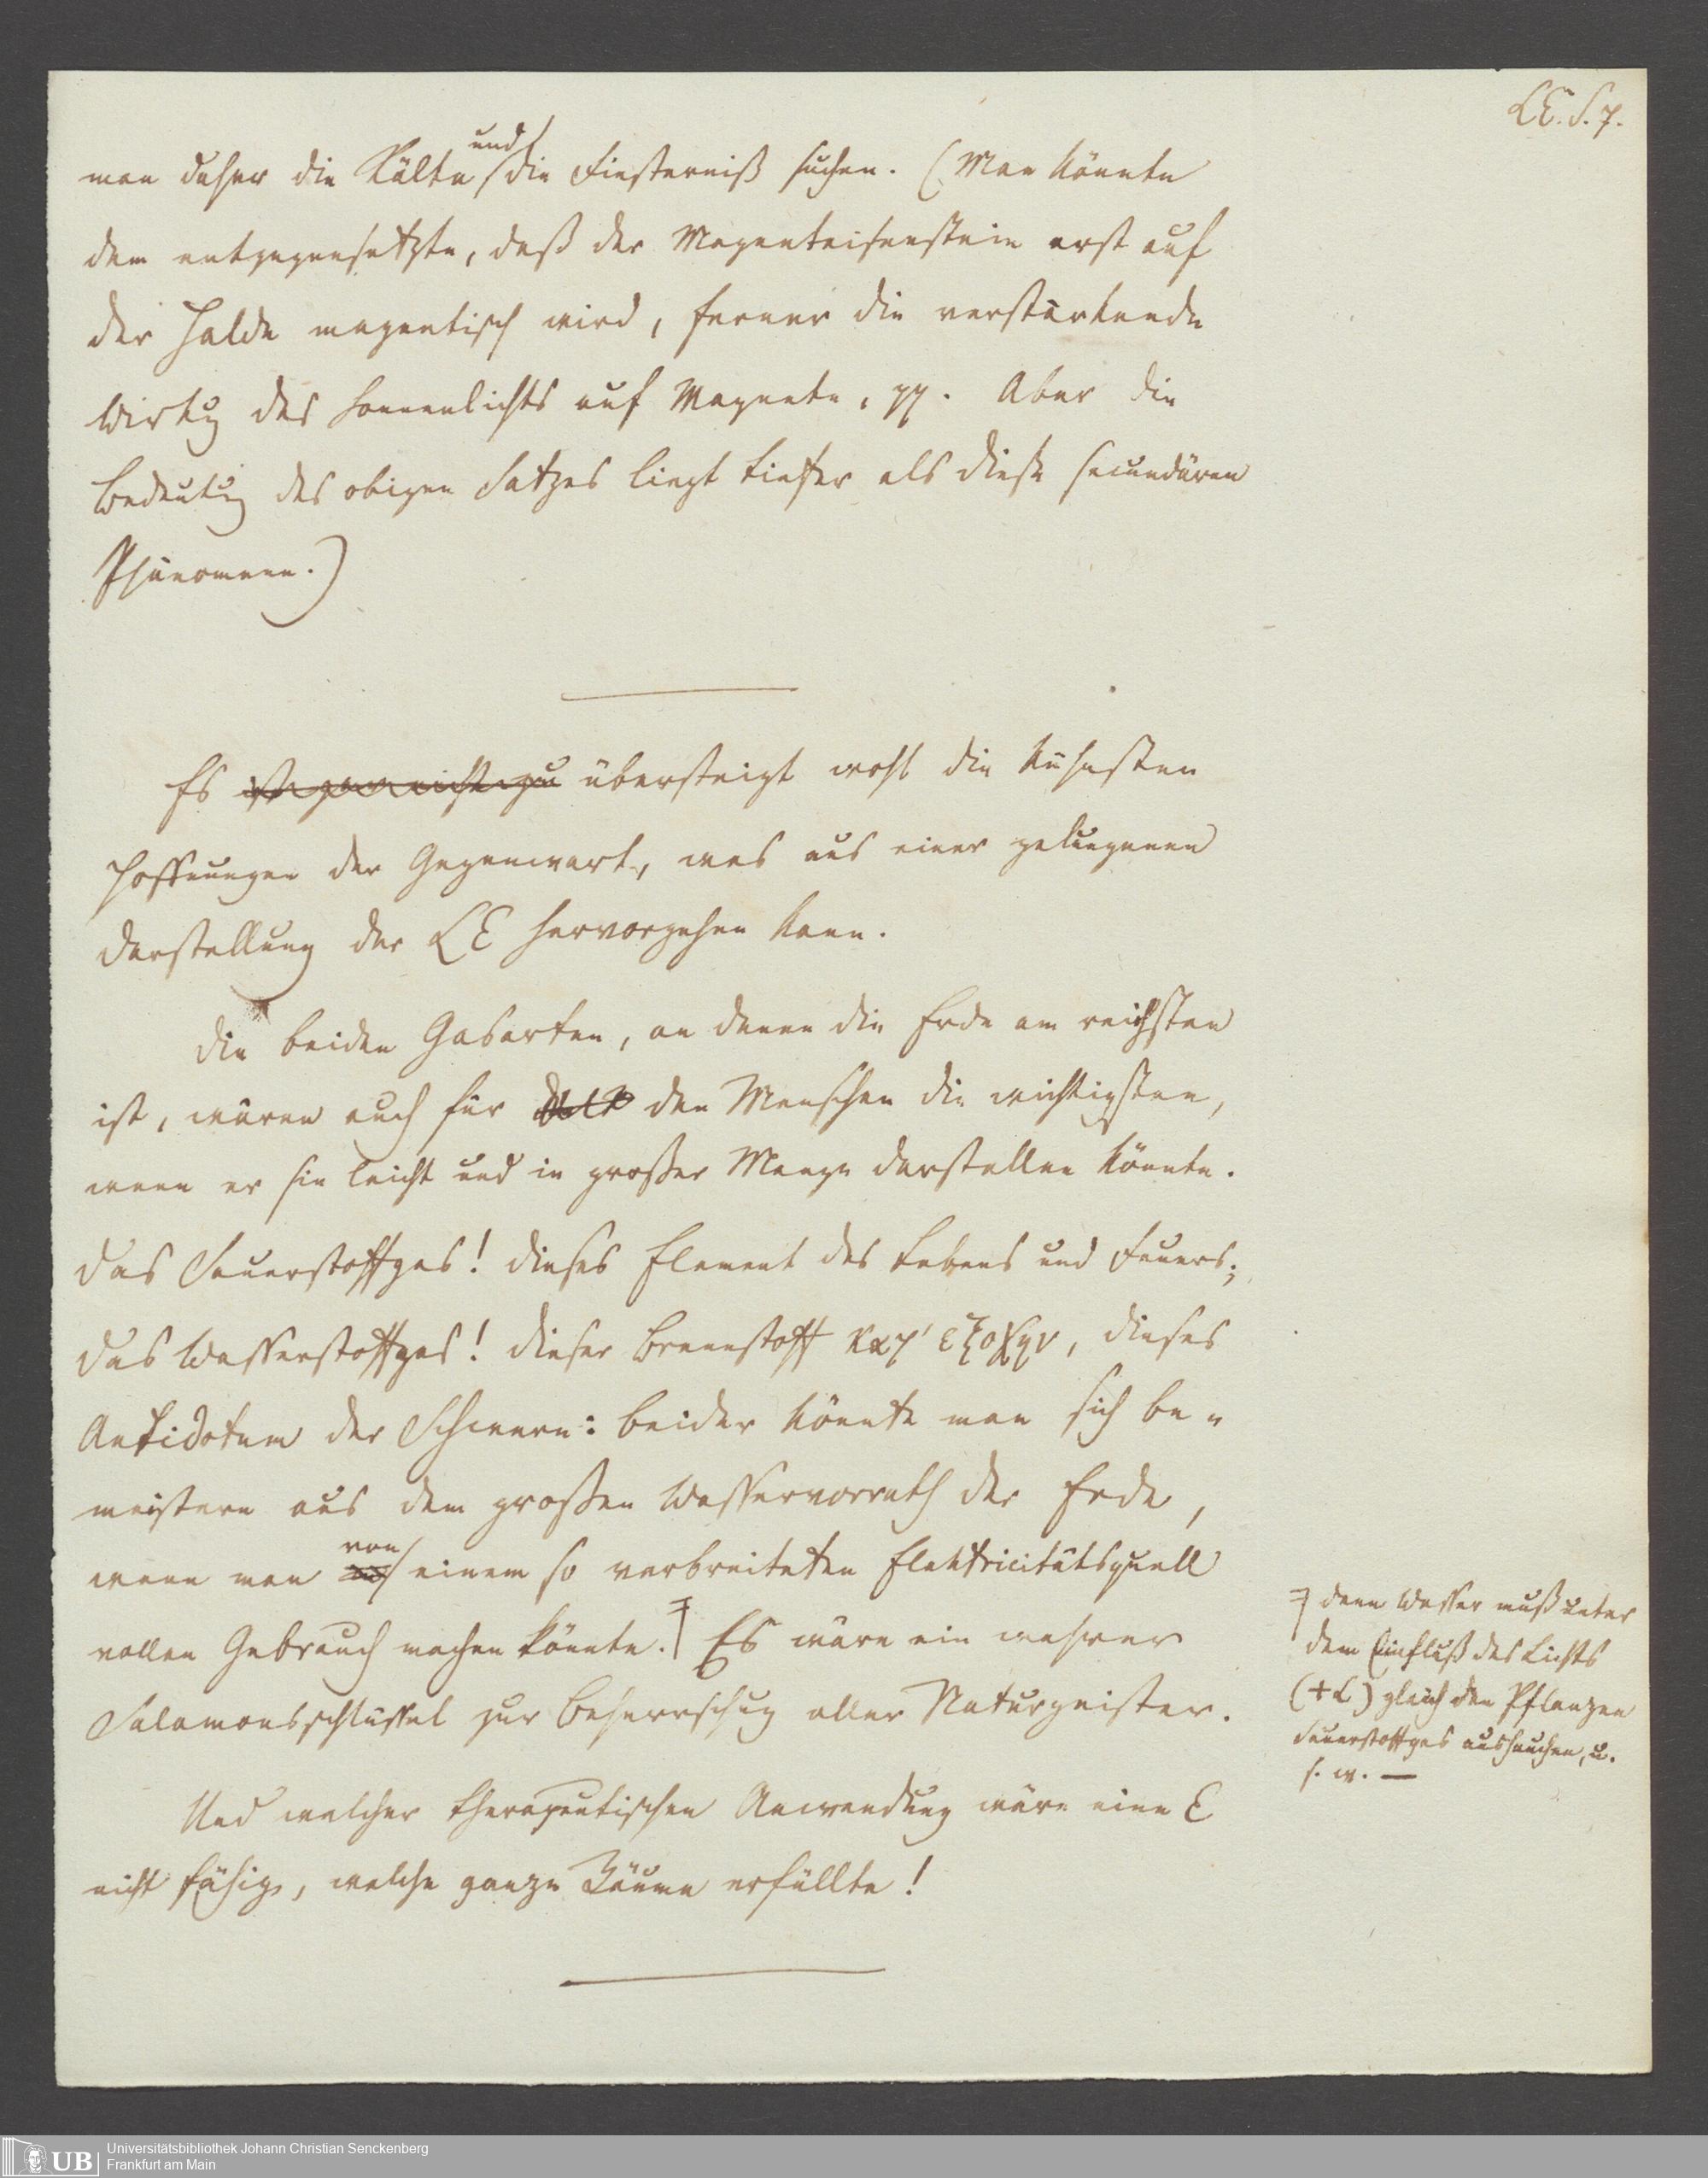 LE. S. 7.
man daher die Kälte und die Finsterniß suchen. (Man könnte
dem entgegensetzen, daß der Magneteisenstein erst auf
der Halde magnetisch wird, ferner die verstärkende
Wirkg des Sonnenlichts auf Magnete, pp. Aber die
Bedeutug des obigen Satzes liegt tiefer als diese secundären
Phänomene.)
Es ist gar nicht zu übersteigt wohl die kühnsten
Hoffnungen der Gegenwart, was aus einer gelungenen
Darstellung der LE hervorgehen kann.
Die beiden Gasarten, an denen die Erde am reichsten
ist, wären auch für den Menschen die wichtigsten,
wenn er sie leicht und in großer Menge darstellen könnte.
Das Sauerstoffgas! dieses Element des Lebens und Feuers;
das Wasserstoffgas! dieser Brennstoff κατ' εξοχην, dieses
Antidotum der Schwere: beider könnte man sich be-
meistern aus dem großen Wasservorrath der Erde,
wenn man von einem so verbreiteten Elektricitätsquell
vollen Gebrauch machen könnte. Es wäre ein wahrer
Salamonsschlüssel zur Beherrschug aller Naturgeister.
denn Wasser muß unter
dem Einfluß des Lichts
(+L) gleich den Pflanzen
Sauerstoffgas aushauchen, u.
s. w. —
Und welcher therapeutischen Anwendung wäre eine E
nicht fähig, welche ganze Räume erfüllte!
UB
Universitätsbibliothek Johann Christian Senckenberg
Frankfurt am Main